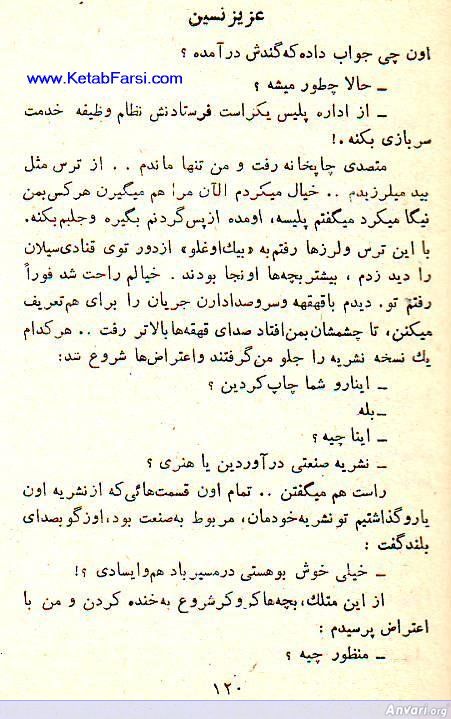 عزیز نسین
اون چی جواب داده که گندش درآمده ؟
www.KetabFarsi.com
ـ حالا چطور میشه ؟
ـ از اداره پلیس یکراست فرستادنش نظام وظیفه خدمت
سربازی بکنه .!
متصدی چاپخانه رفت و من تنها ماندم . . از ترس مثل
بید میلرزیدم .. خیال میکردم الآن مرا هم میگیرن هرکس بمن
نیگا میکرد میگفتم پلیسه، اومده از پس گردنم بگیره و جلبم بکنه.
با این ترس ولرزها رفتم به «بیك اوغلو» ازدور توی قنادی سیلان
را دید زدم ، بیشتر بچه‌ها اونجا بودند . خیالم راحت شد فوراً
رفتم تو. دیدم باقهقهه وسروصدا دارن جریان را برای هم تعریف
میکنن، تا چشمشان بمن افتاد صدای قهقه‌ها بالاتر رفت .. هرکدام
یك نسخه نشریه را جلو من گرفتند و اعتراض‌ها شروع شد:
ـ اینارو شما چاپ کردین ؟
ـ بله
ـ اینا چیه ؟
ـ نشریه صنعتی درآوردین یا هنری ؟
راست هم میگفتن .. تمام اون قسمت‌هائی که از نشریه اون
یارو گذاشتیم تو نشریه خودمان، مربوط به صنعت بود، اوزگو بصدای
بلند گفت :
ـ خیلی خوش بوهستی درمسیر باد هم وایسادی ؟!
از این متلك، بچه‌ها کروکر شروع به خنده کردن و من با
اعتراض پرسیدم :
ـ منظور چیه ؟
۱۲۰
Anvari.org